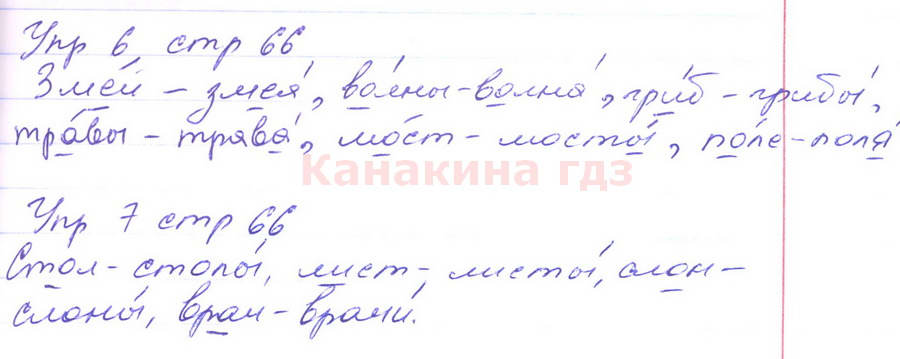 Упр 6 стр 66
Змеи́ – змея́, во́лны – волна́, гри́б – грибы́,
тра́вы – трава́, мо́ст – мосты́, по́ле – поля́
Канакина гдз
Упр 7 стр 66
Стол – столы́, лист – листы́, слон –
слоны́, врач – врачи́.